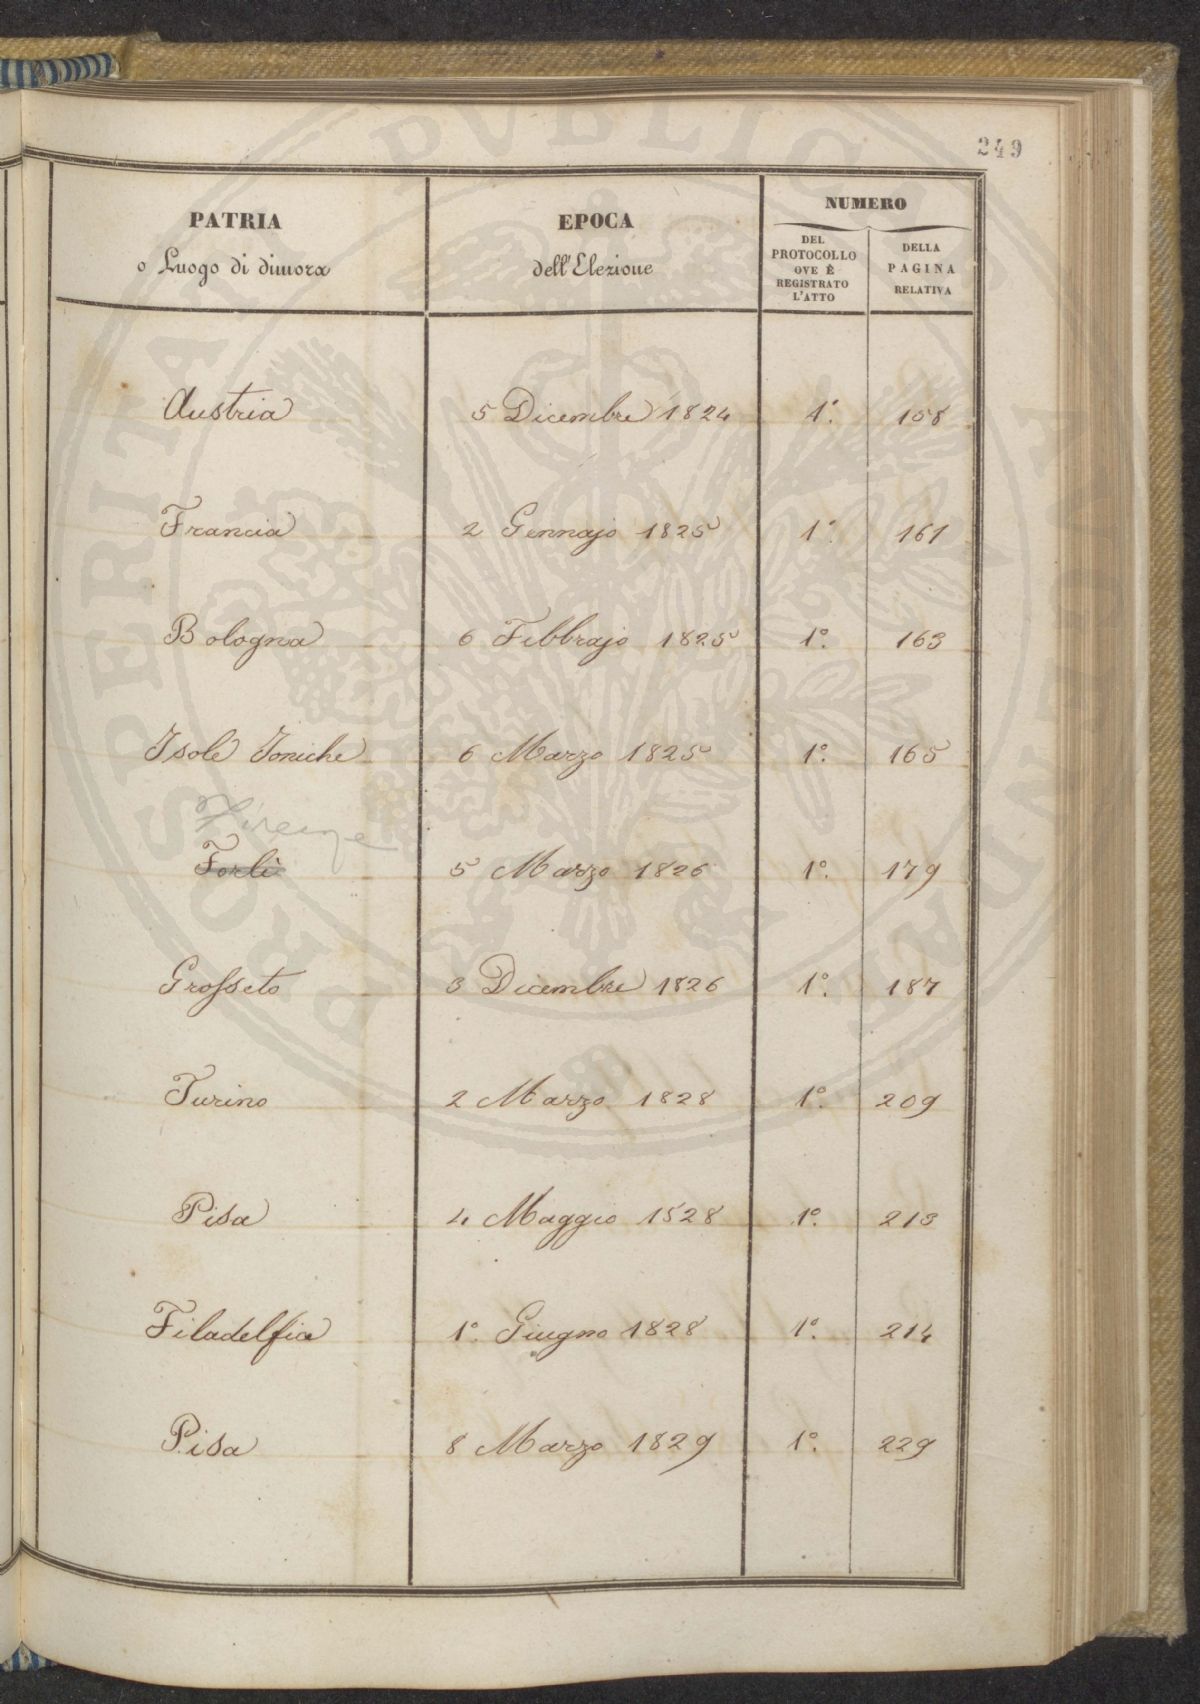 249
PATRIA
o Luogo di dimora
EPOCA
dell'Elezione
NUMERO
DEL
PROTOCOLLO
OVE È
REGISTRATO
L'ATTO
DELLA
PAGINA
RELATIVA
Austria 5 Dicembre 1824 1º. 158
Francia 2 Gennajo 1825 1º. 161
Bologna 6 Febbrajo 1825 1º. 163
Isole Joniche 6 Marzo 1825 1º. 165
Firenze
Forlì 5 Marzo 1826 1º. 179
Grosseto 3 Dicembre 1826 1º. 187
Turino 2 Marzo 1828 1º. 209
Pisa 4 Maggio 1528 1º. 213
Filadelfia 1º. Giugno 1828 1º. 214
Pisa 8 Marzo 1829 1º. 229
PROSPERITATI PUBLICAE AUGENDAE